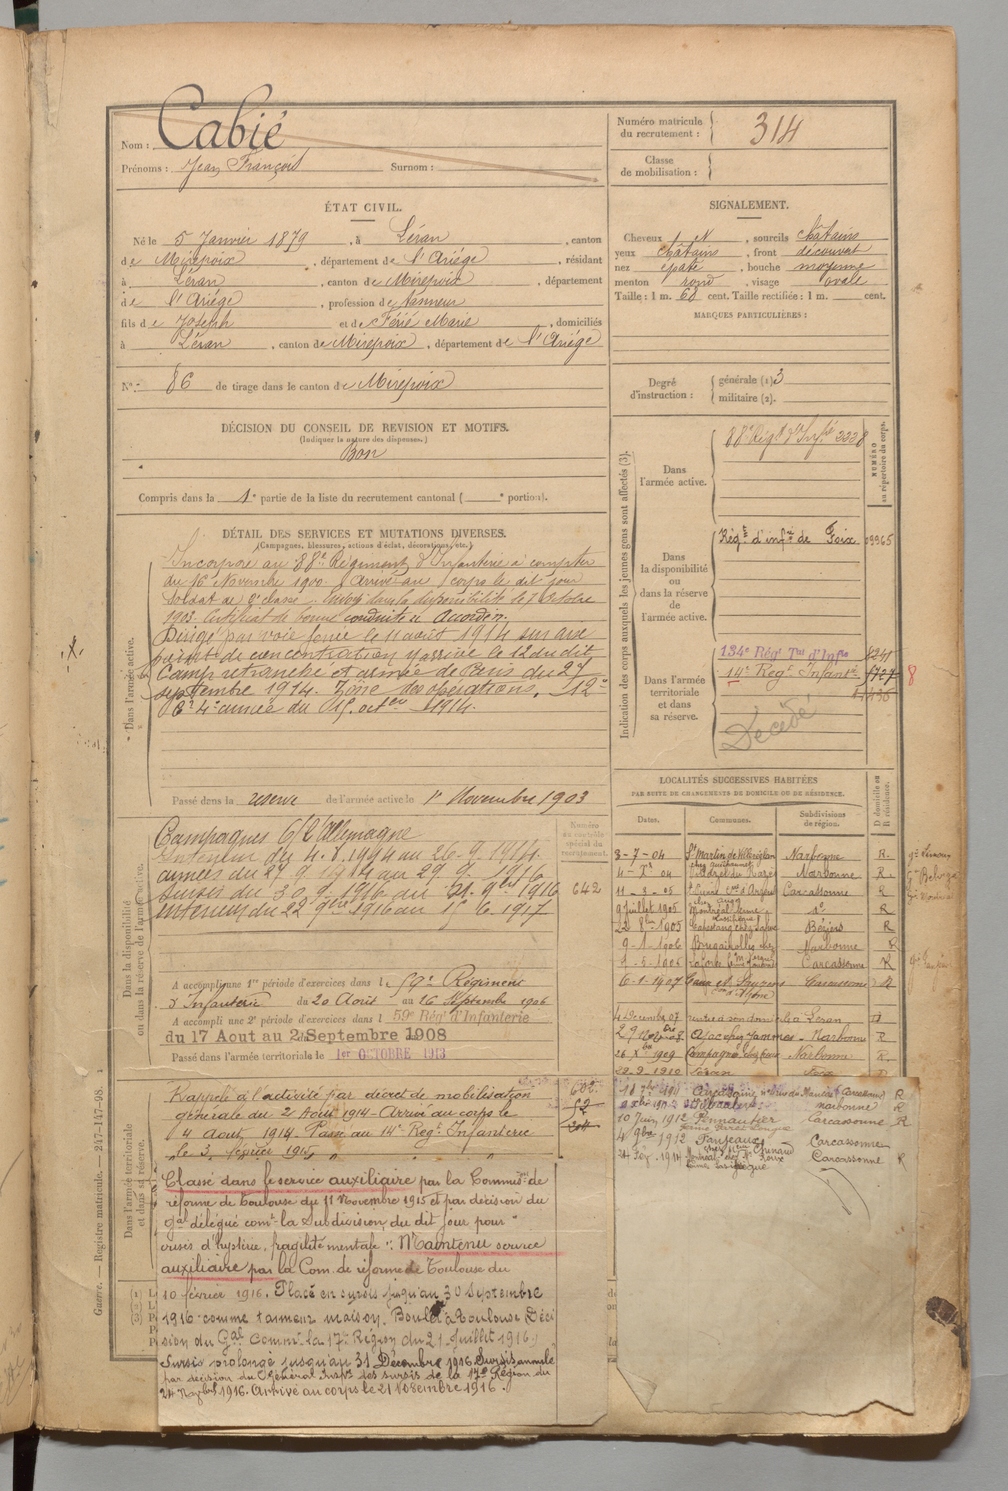 Nom : Cabié
Prénoms : Jean François Surnom :
ÉTAT CIVIL.
Né le 5 Janvier 1879, à Léran, canton
de Mirepoix, département de l'Ariége, résidant
à Léran, canton de Mirepoix, département
de l'Ariége, profession de tanneur
fils de Joseph et de Férié Marie, domiciliés
à Léran, canton de Mirepoix, département de l'Ariége
N° 86 de tirage dans le canton de Mirepoix
DÉCISION DU CONSEIL DE REVISION ET MOTIFS.
(Indiquer la nature des dispenses.)
Bon
Compris dans la 1e partie de la liste du recrutement cantonal ( e portion).
DÉTAIL DES SERVICES ET MUTATIONS DIVERSES.
(Campagnes, blessures, actions d'éclat, décorations, etc.)
Dans l'armée active.
Incorporé au 88e Régiment d'Infanterie à compter
du 16 Novembre 1900. Arrivé au corps le dit jour
Soldat de 2e classe. Envoyé dans la disponibilité le 7 Octobre
1903. Certificat de bonne conduite " Accordé ".
Dirigé par voie ferrée le 11 août 1914 sur
de concentration y arrive le 12 du dit
Camp retranché et armée de Paris du 27
septembre 1914. Zône des opérations. 12e
4e armée du 15 octbre 1914.
Passé dans la reserve de l'armée active le 1er Novembre 1903
Dans la disponibilité
ou dans la réserve de l'armée active.
Campagnes C/ l'Allemagne
Intérieur du 4.8.1914 au 26.9.1914.
armées du 27.9.1914 au 29.9.1916
sursis du 30.9.1916 au 21.9bre 1916
intérieur du 22 9bre 1916 au 15.6.1917
Numéro
au contrôle
spécial du
recrutement.
642
A accompli une 1re période d'exercices dans le 59e Régiment
d'Infanterie du 20 Août au 16 Septembre 1906
A accompli une 2e période d'exercices dans le 59e Rég d'Infanterie
du 17 Aout au 2 Septembre 1908
Passé dans l'armée territoriale le 1er OCTOBRE 1913
Dans l'armée territoriale
et dans sa réserve.
Rappelé à l'activité par décret de mobilisation
générale du 2 Août 1914 - Arrivé au corps le
4 Aout 1914. Passé au 14e Régt Infanterie
le 3 février 1915
Classé dans le service auxiliaire par la Commis.on de
réforme de Toulouse du 11 Novembre 1915 et par décision du
gal délégué comt la Subdivision du dit jour pour "
crises d'hystérie, fragilité mentale ". Maintenu service
auxiliaire par la Com. de réforme de Toulouse du
10 février 1916. Placé en sursis jusqu'au 30 Septembre
1916 comme tanneur maison à Toulouse Déci
sion du Gal Commt la 17e Région du 21 Juillet 1916)
Sursis prolongé jusqu'au 31 Décembre 1916 Sursis annulé
par décision du Général Inspr des sursis de la 17e Région du
1916. Arrivé au corps le 21 1916.
Guerre. — Registre matricule. — 247-147-98.
Numéro matricule
du recrutement : 314
Classe
de mobilisation :
SIGNALEMENT.
Cheveux N, sourcils châtains
yeux châtains, front découvert
nez épaté, bouche moyenne
menton rond, visage ovale
Taille : 1 m. 68 cent. Taille rectifiée : 1 m. cent.
MARQUES PARTICULIÈRES :
Degré
d'instruction :
générale (1) 3
militaire (2).
Indication des corps auxquels les jeunes gens sont affectés (3).
NUMÉRO
au répertoire du corps.
Dans
l'armée active.
88e Régt d'Infie 3338
Dans
la disponibilité
ou
dans la réserve
de
l'armée active.
Régt d'infie de Foix 09965
Dans l'armée
territoriale
et dans
sa réserve.
134e Régt Tal d'Infie
14e Régt Infantie
8
Décédé
LOCALITÉS SUCCESSIVES HABITÉES
PAR SUITE DE CHANGEMENTS DE DOMICILE OU DE RÉSIDENCE.
Dates. Communes. Subdivisions
de région.
D domicile ou
R résidence.
8-7-04 St Martin de Villereglan Narbonne R.
04 Narbonne R.
11-3-05 Carcassonne R
9 Juillet 1905 Montréal R
1905 Béziers R
9-1-1906 Brugairolles chez Narbonne R
1906 Carcassonne R
6-1-1907 Carcassonne R
4 Décembre 07 rentré à son domicile à Léran D
Narbonne R.
26 1909 Campagne Narbonne R.
1910 Léran Foix D
Carcassonne R
Narbonne R
10 Juin 1912 Pennautier Carcassonne R
4 9bre 1912 Fanjeaux Carcassonne
1914 Montréal Carcassonne R